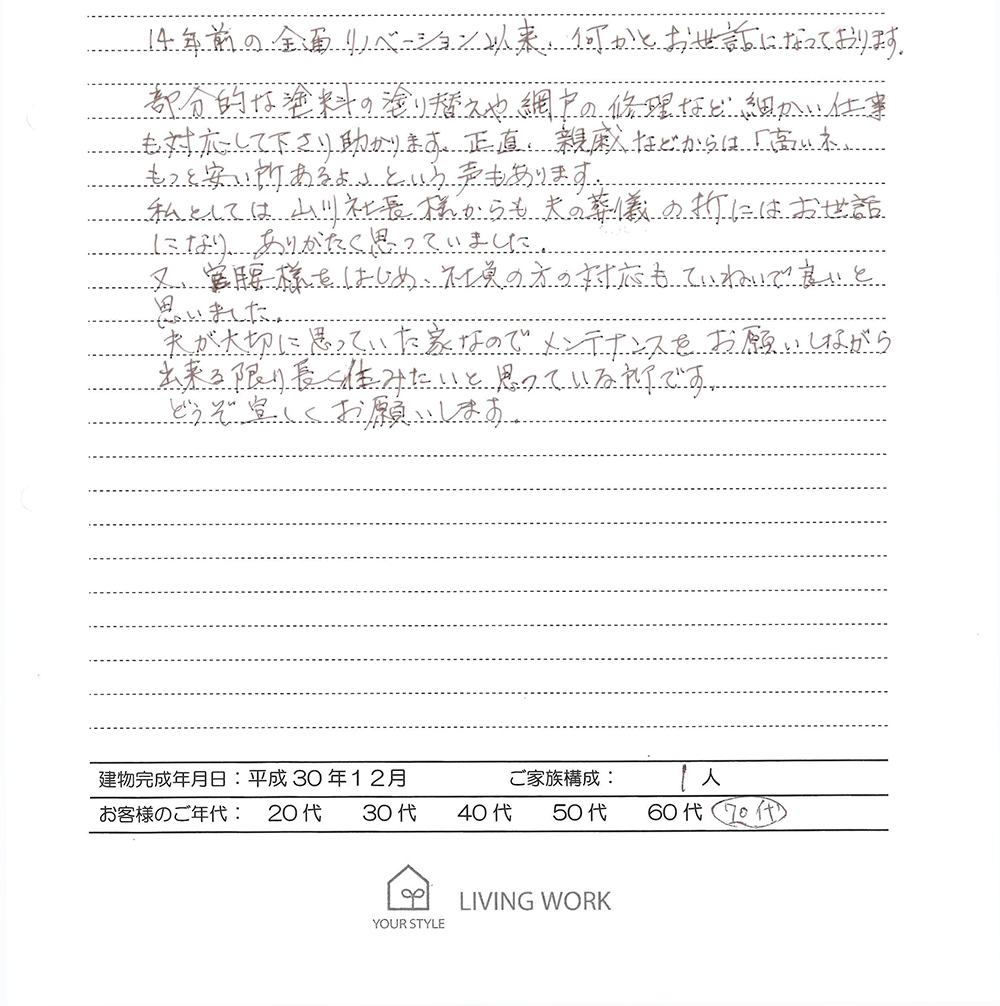 14年前の全面リノベーション以来、何かとお世話になっております。
部分的な塗料の塗り替えや網戸の修理など細かい仕事
も対応して下さり助かります。正直、親戚などからは「高いネ、
もっと安い所あるよ」という声もあります。
私としては山川社長様からも夫の葬儀の折にはお世話
になり、ありがたく思っていました。
又、様をはじめ、社員の方の対応もていねいで良いと
思いました。
夫が大切に思っていた家なのでメンテナンスをお願いしながら
出来る限り長く住みたいと思っている所です。
どうぞ宜しくお願いします。
建物完成年月日：平成30年12月 ご家族構成： 1人
お客様のご年代： 20代 30代 40代 50代 60代 70代
YOUR STYLE LIVING WORK